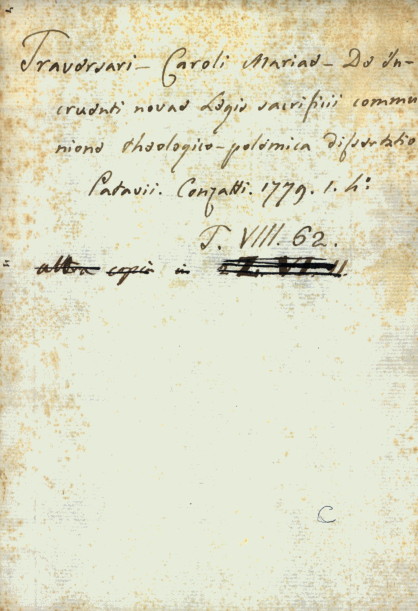 Traversari – Caroli Mariae – De In-
cruenti novae Legis sacrificii commu
nione theologico-polemica dissertatio
Patavii. Conzatti. 1779. 1. 4º
T. VIII. 62.
altra copia in
C